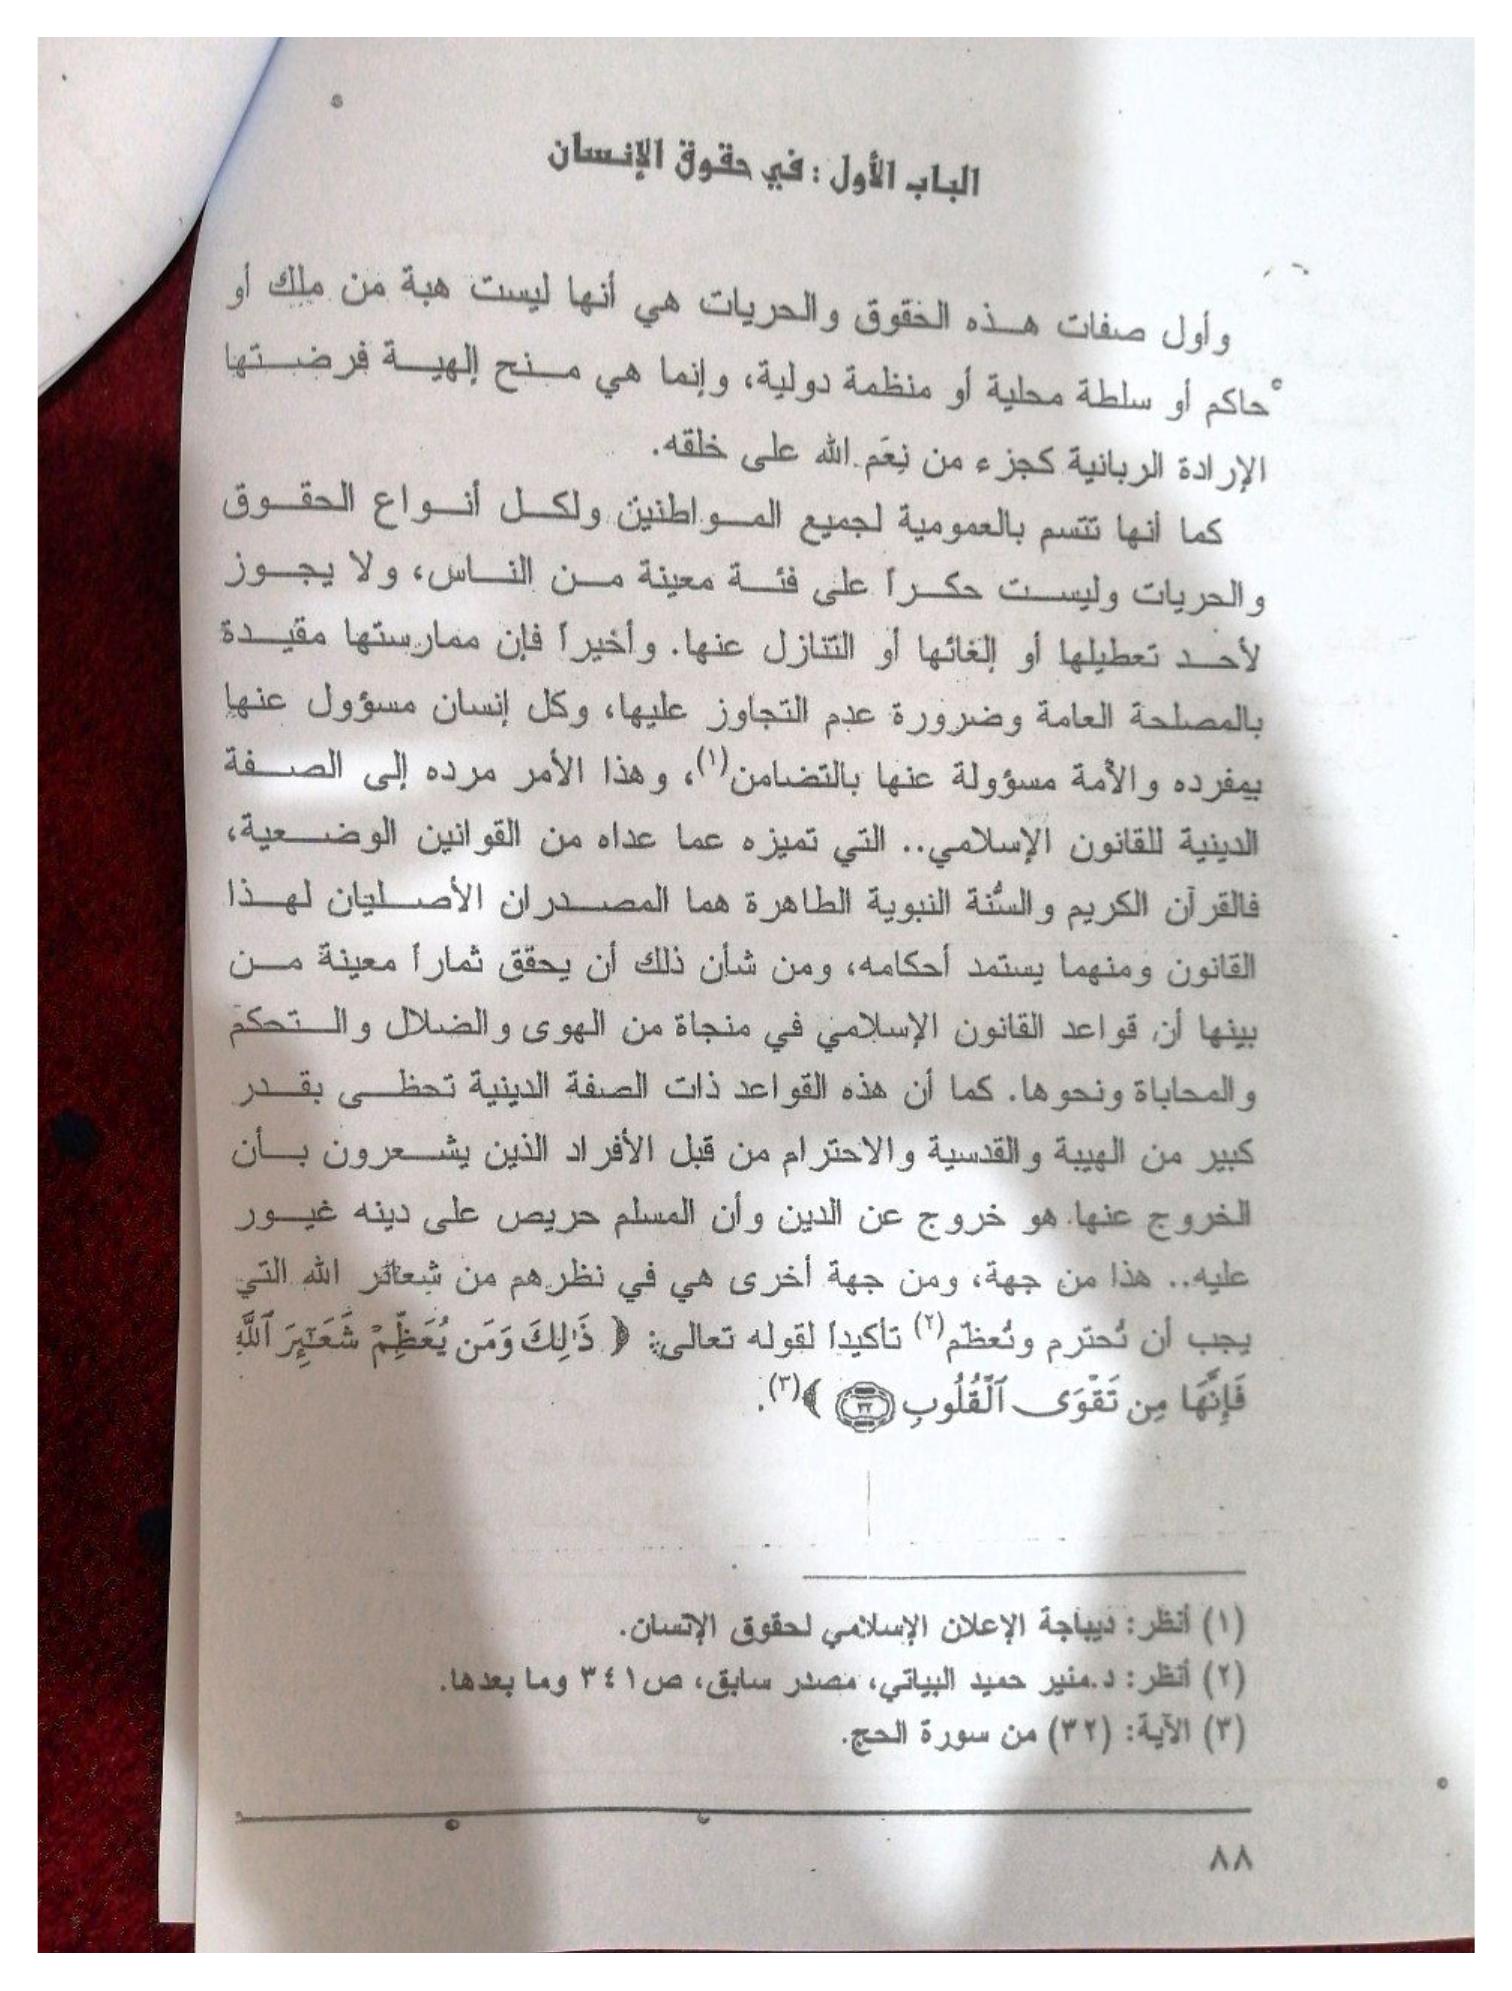 الباب الأول : في حقوق الإنسان
وأول صفات هذه الحقوق والحريات هي أنها ليست هبة من ملك أو
حاكم أو سلطة محلية أو منظمة دولية، وإنما هي منح إلهية فرضتها
الإرادة الربانية كجزء من نِعَم الله على خلقه.
كما أنها تتسم بالعمومية لجميع المواطنين ولكل أنواع الحقوق
والحريات وليست حكراً على فئة معينة من الناس، ولا يجوز
لأحد تعطيلها أو إلغائها أو التنازل عنها. وأخيراً فإن ممارستها مقيدة
بالمصلحة العامة وضرورة عدم التجاوز عليها، وكل إنسان مسؤول عنها
بمفرده والأمة مسؤولة عنها بالتضامن(١)، وهذا الأمر مرده إلى الصفة
الدينية للقانون الإسلامي.. التي تميزه عما عداه من القوانين الوضعية،
فالقرآن الكريم والسُّنة النبوية الطاهرة هما المصدران الأصليان لهذا
القانون ومنهما يستمد أحكامه، ومن شأن ذلك أن يحقق ثماراً معينة من
بينها أن قواعد القانون الإسلامي في منجاة من الهوى والضلال والتحكم
والمحاباة ونحوها. كما أن هذه القواعد ذات الصفة الدينية تحظى بقدر
كبير من الهيبة والقدسية والاحترام من قبل الأفراد الذين يشعرون بأن
الخروج عنها هو خروج عن الدين وأن المسلم حريص على دينه غيور
عليه.. هذا من جهة، ومن جهة أخرى هي في نظرهم من شعائر الله التي
يجب أن تُحترم وتُعظّم(٢) تأكيداً لقوله تعالى: ﴿ ذَٰلِكَ وَمَن يُعَظِّمْ شَعَٰٓئِرَ ٱللَّهِ
فَإِنَّهَا مِن تَقْوَى ٱلْقُلُوبِ ٣٢ ﴾(٣).
(١) أنظر: ديباجة الإعلان الإسلامي لحقوق الإنسان.
(٢) أنظر: د.منير حميد البياتي، مصدر سابق، ص٣٤١ وما بعدها.
(٣) الآية: (٣٢) من سورة الحج.
٨٨